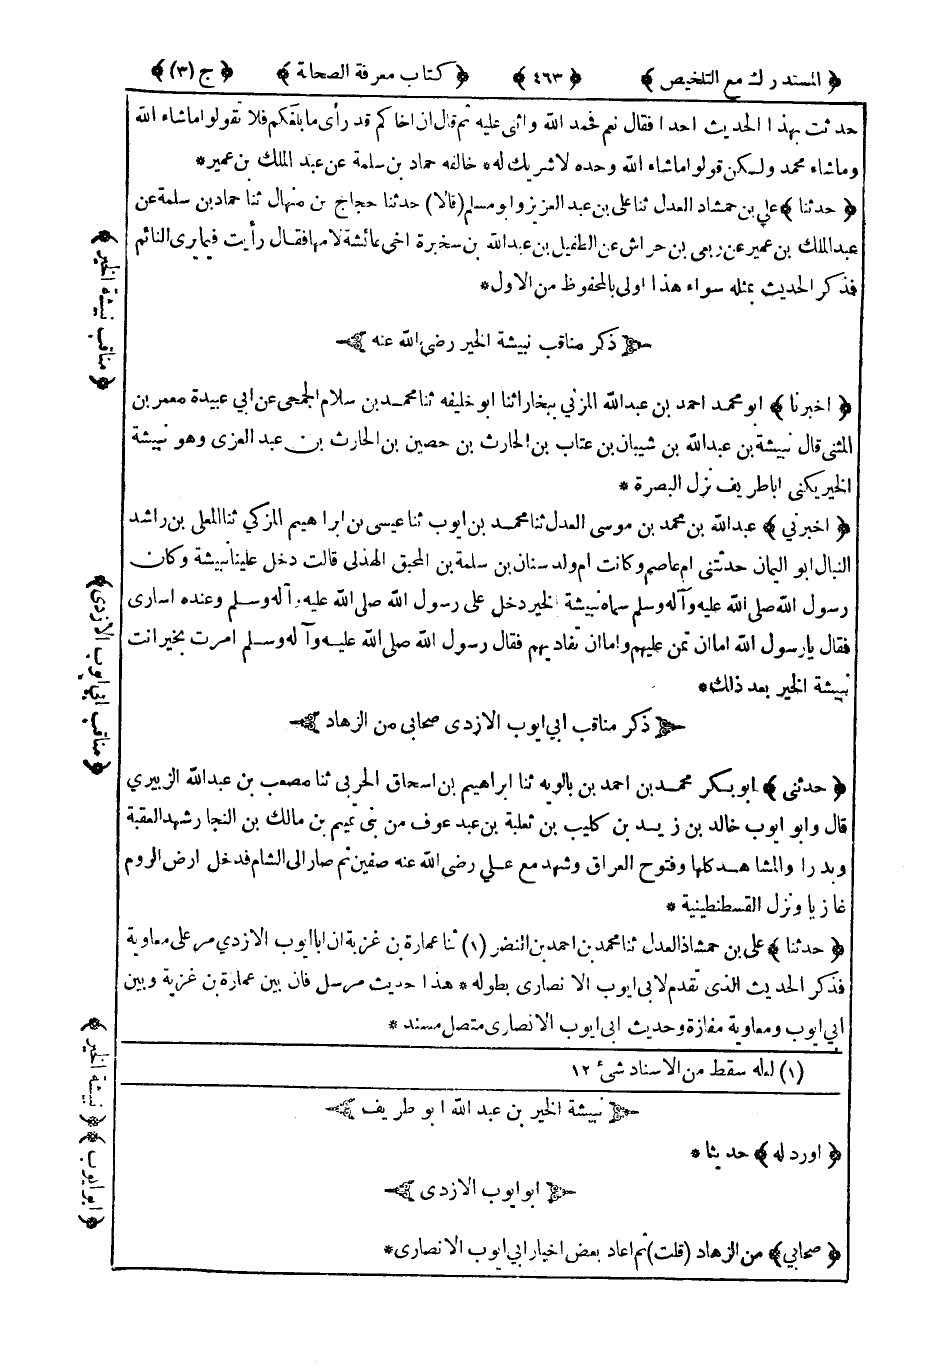 ﴿ المستدرك مع التلخيص ﴾ ﴿ ٤٦٣ ﴾ ﴿ كتاب معرفة الصحابة ﴾ ﴿ ج (٣) ﴾
حدثت بهذا الحديث احدا فقال نعم فحمد الله واثنى عليه ثم قال ان اخاكم قد رأى ما بلغكم فلا تقولوا ما شاء الله
وما شاء محمد ولكن قولوا ما شاء الله وحده لا شريك له * خالفه حماد بن سلمة عن عبد الملك بن عمير *
﴿ حدثنا ﴾ علي بن حمشاد العدل ثنا علي بن عبد العزيز وابو مسلم (قالا) حدثنا حجاج بن منهال ثنا حماد بن سلمة عن
عبد الملك بن عمير عن ربعي بن حراش عن الطفيل بن عبد الله بن سخبرة اخي عائشة لامها فقال رأيت فيما يرى النائم
فذكر الحديث بمثله سواء هذا اولى بالمحفوظ من الاول *
ذكر مناقب نبيشة الخير رضي الله عنه
﴿ اخبرنا ﴾ ابو محمد احمد بن عبد الله المزني ببخارا ثنا ابو خليفه ثنا محمد بن سلام الجمحى عن ابي عبيدة معمر بن
المثنى قال نبيشة بن عبد الله بن شيبان بن عتاب بن الحارث بن حصين بن الحارث بن عبد العزى وهو نبيشة
الخير يكنى ابا طريف نزل البصرة *
﴿ اخبرني ﴾ عبد الله بن محمد بن موسى العدل ثنا محمد بن ايوب ثنا عيسى بن ابراهيم المزكي ثنا المعلى بن راشد
النبال ابو اليمان حدثتنى ام عاصم وكانت ام ولد سنان بن سلمة بن المحبق الهذلى قالت دخل علينا نبيشة وكان
رسول الله صلى الله عليه وآله وسلم سماه نبيشة الخير دخل على رسول الله صلى الله عليه وآله وسلم وعنده اسارى
فقال يا رسول الله اما ان تمن عليهم واما ان تفاديهم فقال رسول الله صلى الله عليه وآله وسلم امرت بخير انت
نبيشة الخير بعد ذلك *
ذكر مناقب ابي ايوب الازدى صحابى من الزهاد
﴿ حدثنى ﴾ ابو بكر محمد بن احمد بن بالويه ثنا ابراهيم بن اسحاق الحربى ثنا مصعب بن عبد الله الزبيري
قال وابو ايوب خالد بن زيد بن كليب بن ثعلبة بن عبد عوف من بنى تميم بن مالك بن النجار شهد العقبة
وبدرا والمشاهد كلها وفتوح العراق وشهد مع علي رضى الله عنه صفين ثم صار الى الشام فدخل ارض الروم
غازيا ونزل القسطنطينية *
﴿ حدثنا ﴾ علي بن حمشاذ العدل ثنا محمد بن احمد بن النضر (١) ثنا عمارة بن غزية ان ابا ايوب الازدي مر على معاوية
فذكر الحديث الذى تقدم لابى ايوب الانصارى بطوله * هذا حديث مرسل فان بين عمارة بن غزية وبين
ابي ايوب ومعاوية مفازة وحديث ابى ايوب الانصارى متصل مسند *
(١) لعله سقط من الاسناد شىٔ ١٢
نبيشة الخير بن عبد الله ابو طريف
﴿ اورد له ﴾ حديثا *
ابو ايوب الازدى
﴿ صحابي ﴾ من الزهاد (قلت) ثم اعاد بعض اخبار ابي ايوب الانصارى *
﴿ مناقب نبيشة الخير ﴾
﴿ مناقب ابي ايوب الازدى ﴾
﴿ نبيشة الخير ﴾
﴿ ابو ايوب ﴾